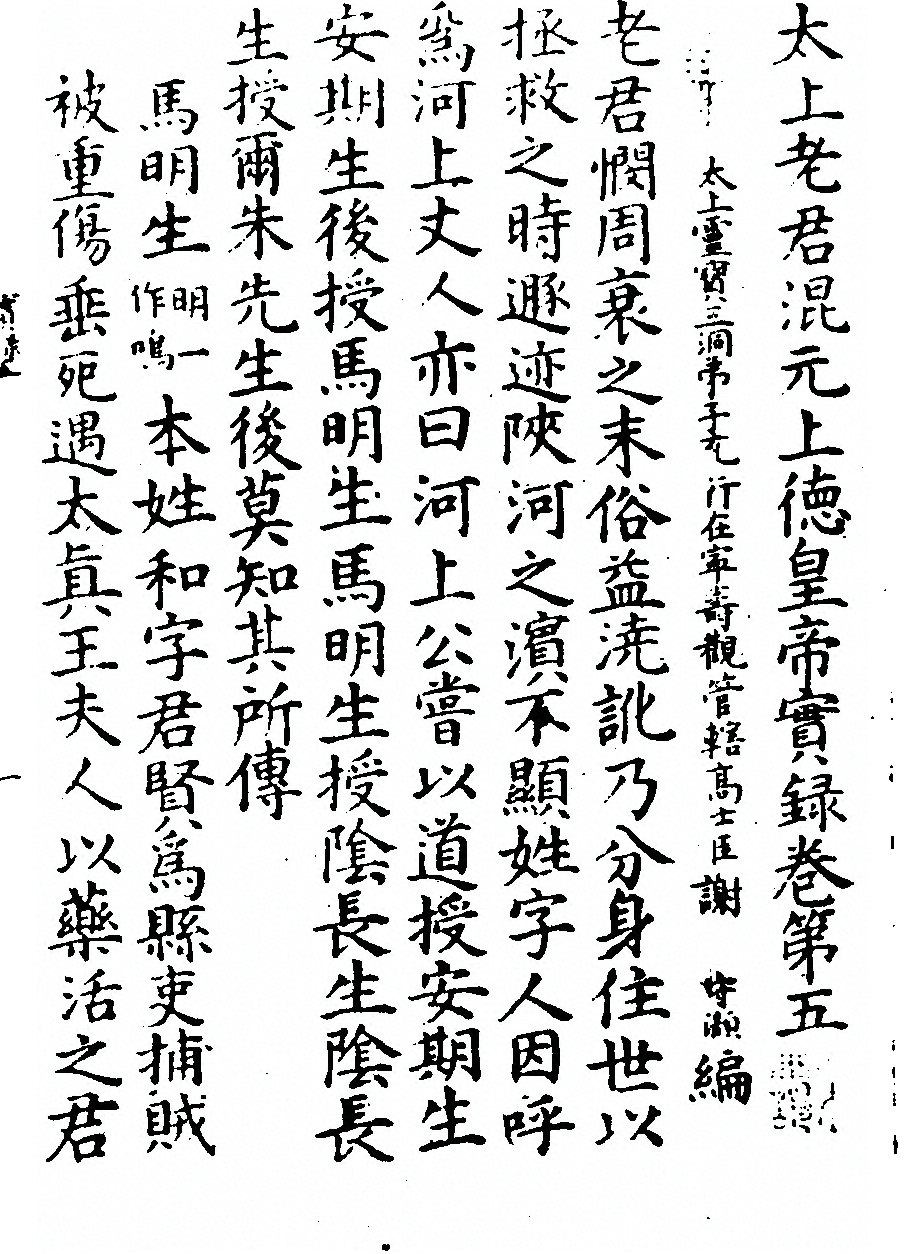 太上老君混元上德皇帝實録卷第五
太上靈寶三洞弟子充行在寧壽觀管轄高士臣謝守灝編
老君憫周衰之末俗益澆訛乃分身住世以
拯救之時遯迹陜河之濱不顯姓字人因呼
爲河上丈人亦曰河上公嘗以道授安期生
安期生後授馬明生馬明生授陰長生陰長
生授爾朱先生後莫知其所傳
馬明生明一作鳴本姓和字君賢爲縣吏捕賊
被重傷垂死遇太真王夫人以藥活之君